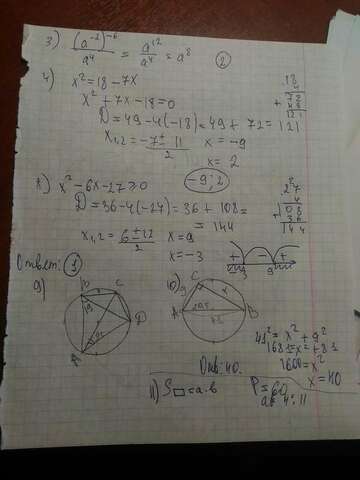 3) (a⁻²)⁻⁶ / a⁴ = a¹² / a⁴ = a⁸ (2)
4) x² = 18 - 7x
x² + 7x - 18 = 0
D = 49 - 4(-18) = 49 + 72 = 121
x₁,₂ = -7 ± 11 / 2 x = -9
x = 2
-9; 2
18
4
72
+ 49
121
8) x² - 6x - 27 ≥ 0
D = 36 - 4(-27) = 36 + 108 =
= 144
x₁,₂ = 6 ± 12 / 2 x = 9
x = -3
27
4
108
+ 36
144
+ - +
-3 9
Ответ:
9)
B C
D
A
10) C
9 x
A B
41² = x² + 9²
1681 = x² + 81
1600 = x²
x = 40
Отв: 40.
11) S▭ = a·b
P = 60
a b 4:11